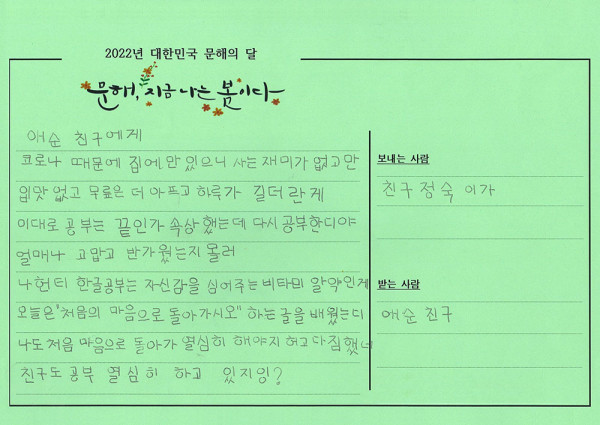 2022년 대한민국 문해의 달
문해, 지금 나는 봄이다
애순 친구에게
코로나 때문에 집에만 있으니 사는 재미가 없고만
입맛 없고 무릎은 더 아프고 하루가 길더란게
이대로 공부는 끝인가 속상했는데 다시 공부한디야
얼매나 고맙고 반가웠는지 몰러
나헌티 한글공부는 자신감을 심어주는 비타미 알약인게
오늘은 "처음의 마음으로 돌아가시오" 하는 글을 배웠는디
나도 처음 마음으로 돌아가 열심히 해야지 허고 다짐했네
친구도 공부 열심히 하고 있지잉?
보내는 사람
친구 점숙 이가
받는 사람
애순 친구